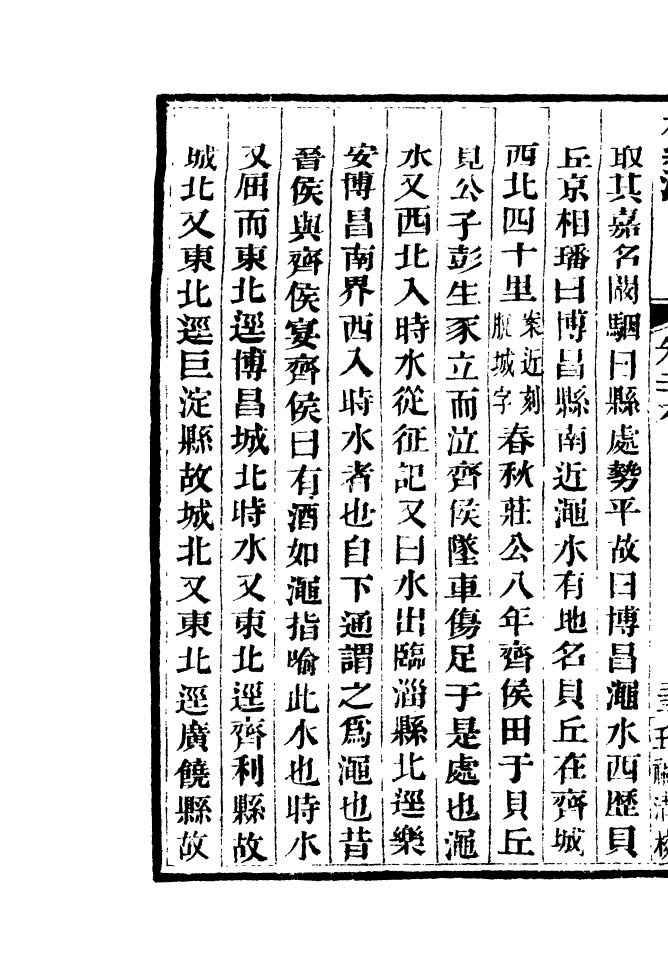 取其嘉名闞駰曰縣處勢平故曰博昌澠水西歷貝
丘京相璠曰博昌縣南近澠水有地名貝丘在齊城
西北四十里案近刻脫城字春秋莊公八年齊侯田于貝丘
見公子彭生豕立而泣齊侯墜車傷足于是處也澠
水又西北入時水從征記又曰水出臨淄縣北逕樂
安博昌南界西入時水者也自下通謂之爲澠也昔
晉侯與齊侯宴齊侯曰有酒如澠指喻此水也時水
又屈而東北逕博昌城北時水又東北逕齊利縣故
城北又東北逕巨淀縣故城北又東北逕廣饒縣故